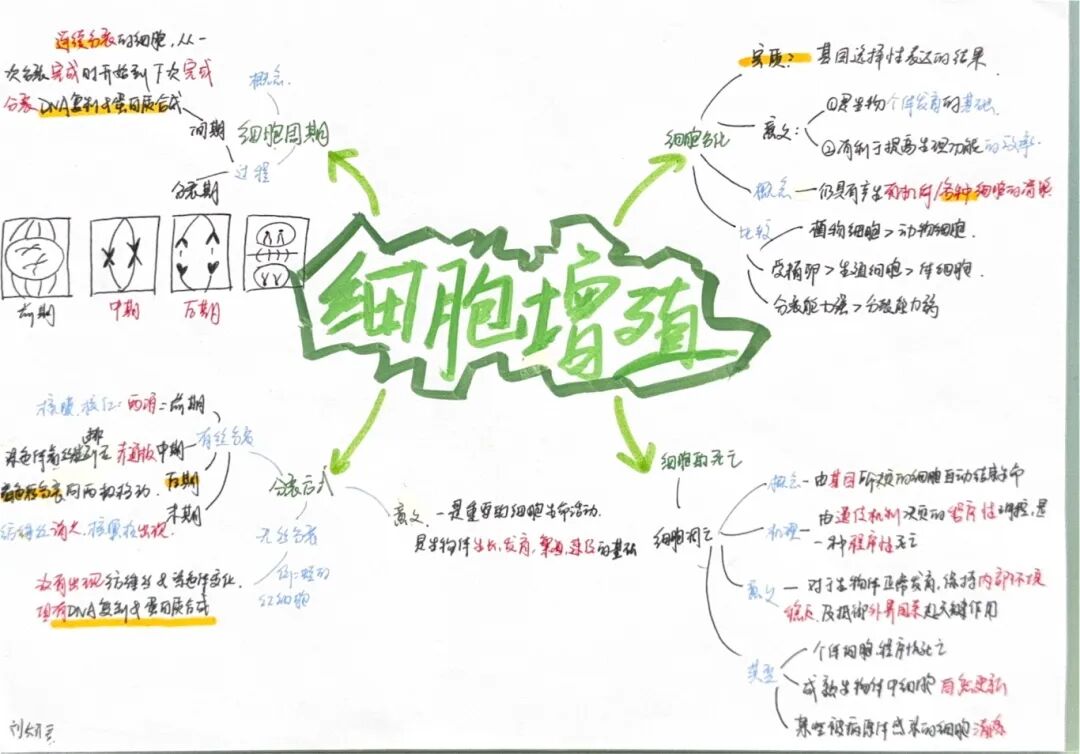 细胞增殖
连续分裂的细胞，从一
次分裂完成时开始到下次完成
分裂
DNA复制&蛋白质合成
概念
间期
细胞周期
过程
分裂期
前期
中期
后期
核膜、核仁：两消＝前期
有丝分裂
染色体着丝粒排列在赤道板 中期
着色粒分裂向两极移动
后期
末期
纺锤丝消失、核膜核仁出现
分裂方式
无丝分裂
例：蛙的
红细胞
没有出现纺锤丝&染色体变化
但有DNA复制&蛋白质合成
意义
一是重要的细胞生命活动
是生物体生长、发育、繁殖、遗传的基础
细胞分化
实质：基因选择性表达的结果
意义：
①是生物个体发育的基础
②有利于提高生理功能的效率
概念—仍具有产生有机体/各种细胞的潜能
比较
植物细胞＞动物细胞
受精卵＞生殖细胞＞体细胞
分裂能力强＞分裂能力弱
细胞的死亡
细胞凋亡
概念—由基因所决定的细胞自动结束生命
机理—由遗传机制决定的程序性调控，是
一种程序性死亡
意义—对于生物体正常发育，维持内部环境
稳定及抵御外界因素起关键作用
类型
个体细胞程序性死亡
成熟生物体中细胞自然更新
某些被病原体感染的细胞清除